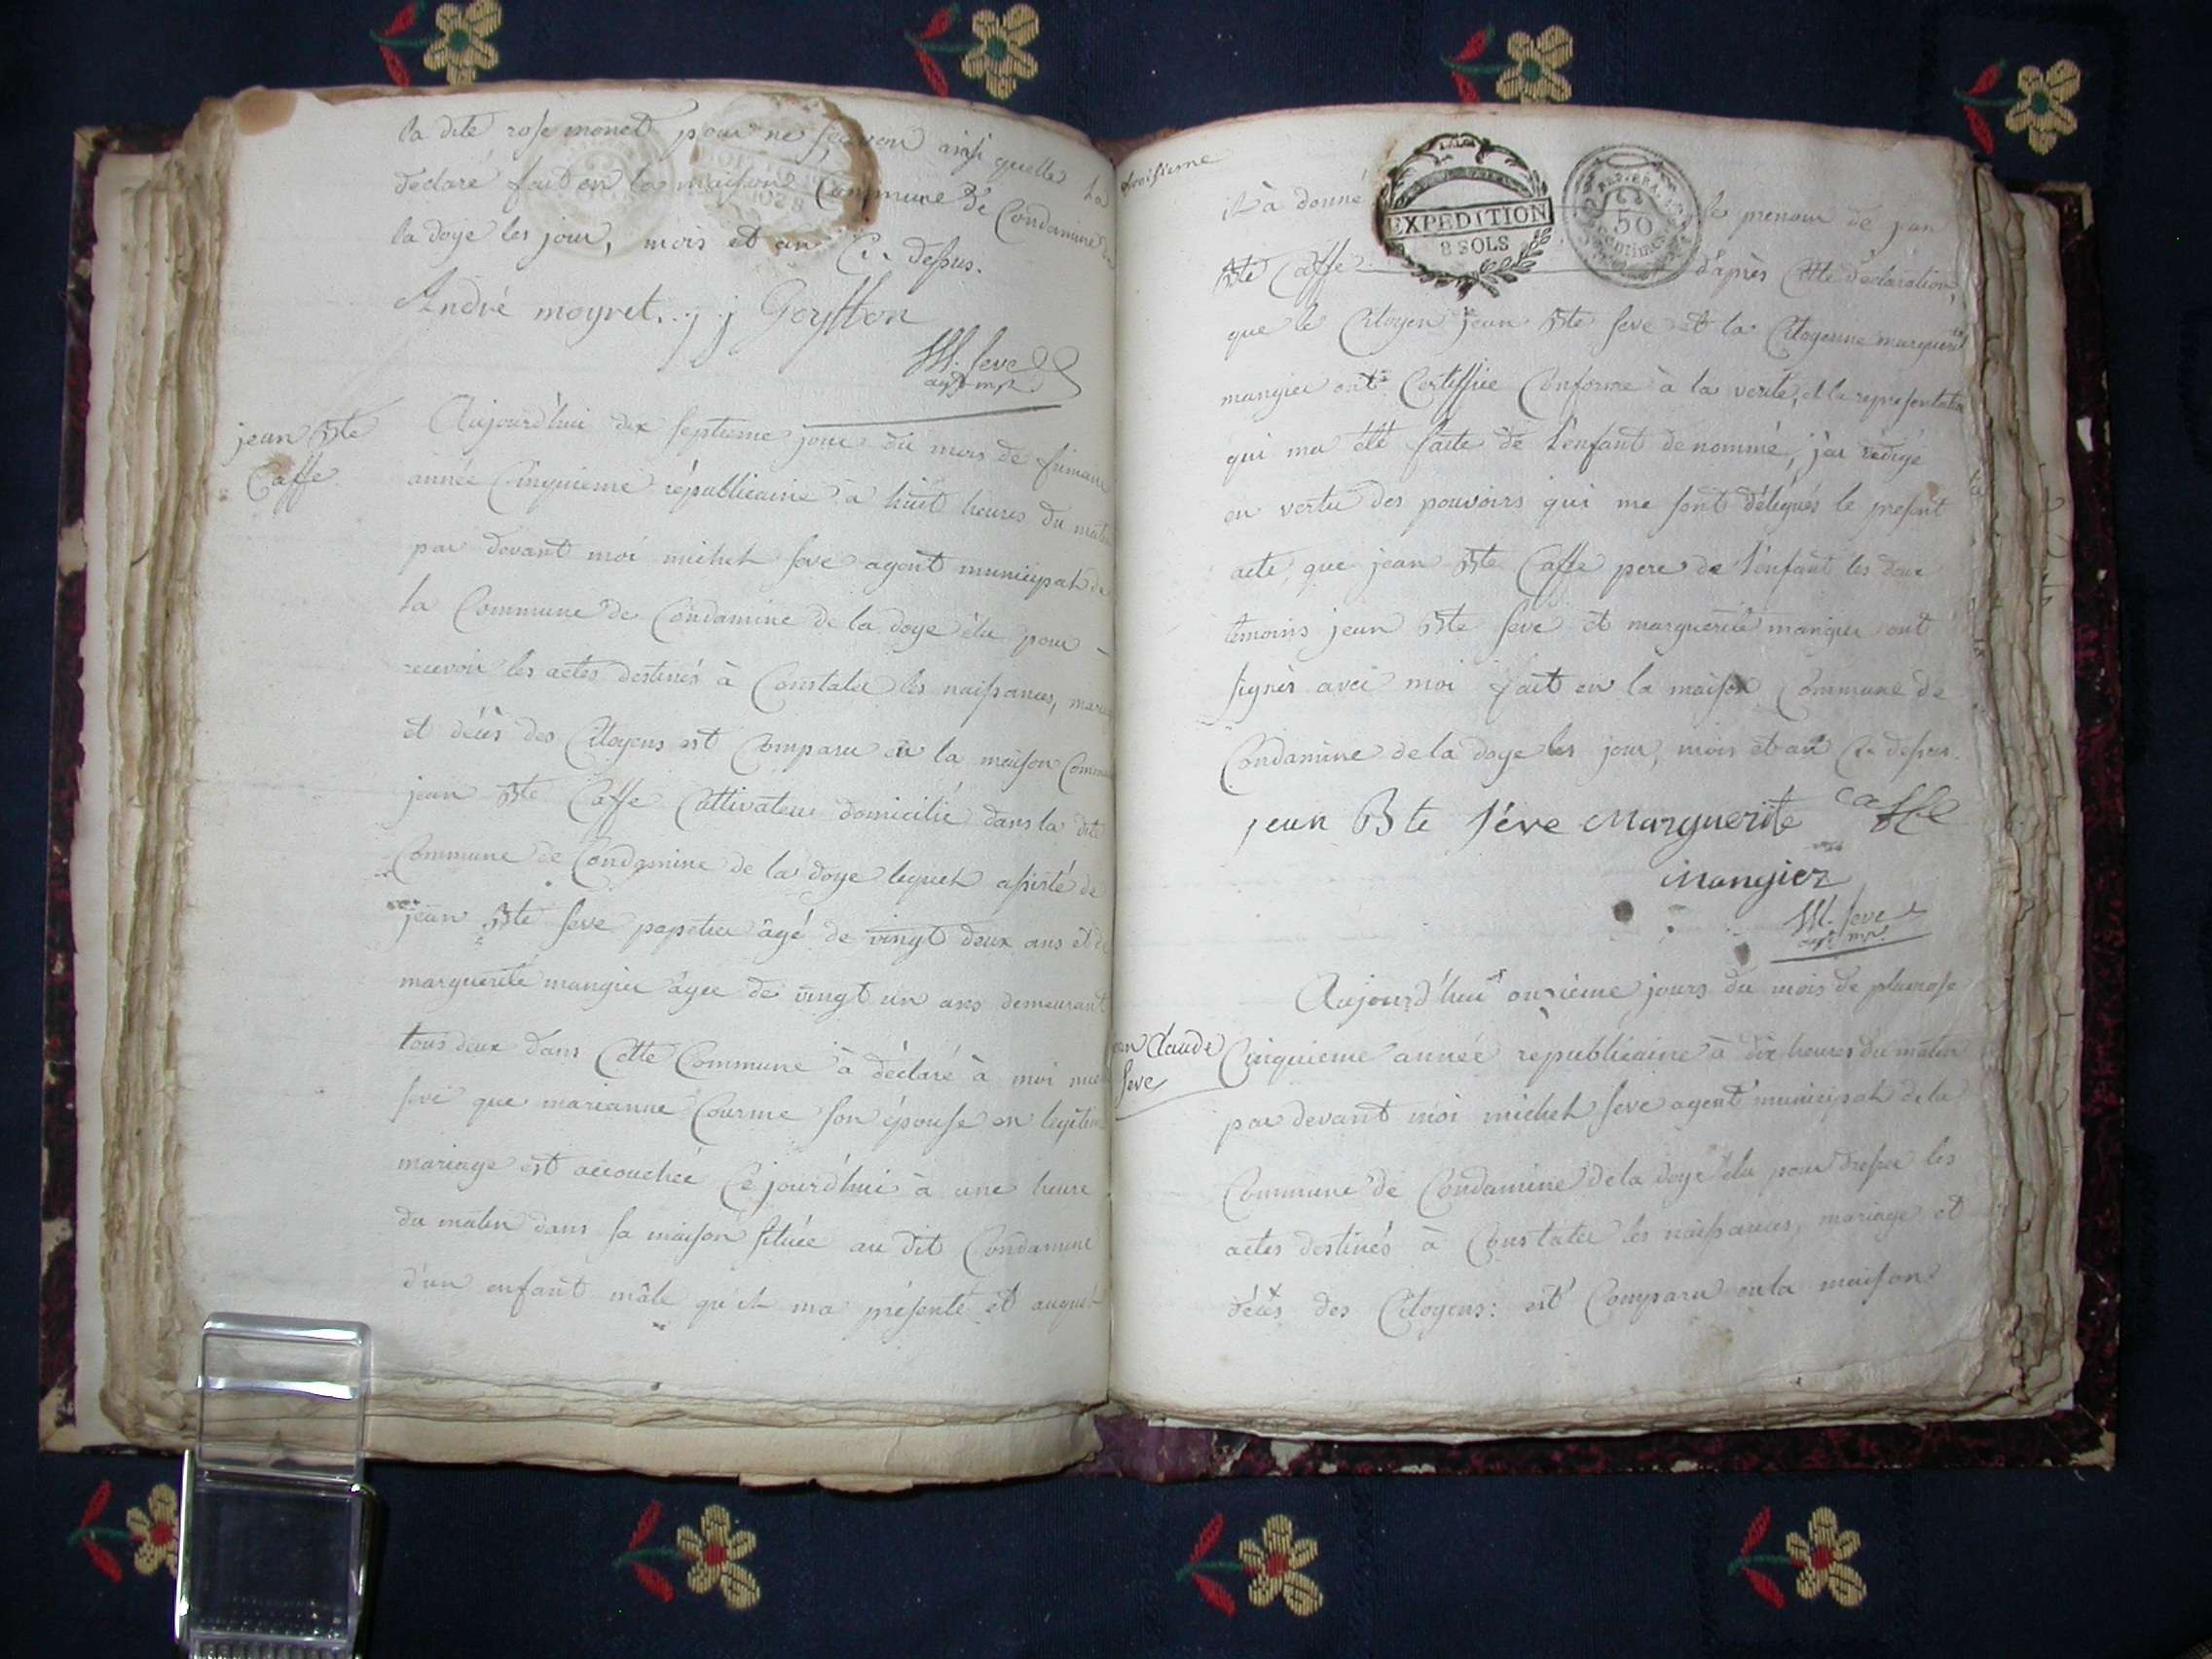 la dite rose monet pour ne sçavoir ainsi quelle la
declaré fait en la maison Commune de Condamine de
la doye les jour, mois et an Ci. dessus.
André moyret. j j Goyffon
M. seve
agt mpl
jean Bte
Caffe
Aujourd'hui dix septieme jour du mois de frimaire
année Cinquieme républicaine à huit heures du matin
par devant moi michel seve agent municipal de
la Commune de Condamine de la doye élu pour
recevoir les actes destinés à Constater les naissances, mariages
et décès des Citoyens est Comparu en la maison Commune
jean Bte Caffe Cultivateur domicilié dans la dite
Commune de Condamine de la doye lequel assisté de
jean Bte seve papetier âgé de vingt deux ans et de
marguerite mangier âgée de vingt un ans demeurant
tous deux dans Cette Commune à déclaré à moi michel
seve que marianne Courme son épouse en legitime
mariage est accouchée Ce jourd'hui à une heure
du matin dans sa maison située au dit Condamine
d'un enfant mâle qu'il ma présenté et auquel
troisieme
il à donné le prenom de jean
EXPEDITION
8 SOLS
50
centimes
Bte Caffe d'après Cette déclaration,
que le Citoyen jean Bte seve et la Citoyenne marguerite
mangier ont Certiffiée Conforme à la verité, et la representation
qui ma été faite de l'enfant denommé, j'ai rédigé
en vertu des pouvoirs qui me sont délégués le present
acte, que jean Bte Caffe pere de l'enfant les deux
temoins jean Bte seve et marguerite mangier ont
signés avec moi fait en la maison Commune de
Condamine de la doye les jour, mois et an Ci. dessus.
jean Bte séve Marguerite caffe
Mangiez
M. seve
agt mpl
jean Claude
seve
Aujourd'hui onzième jours du mois de pluviose
Cinquieme année républicaine à dix heures du matin
par devant moi michel seve agent municipal de la
Commune de Condamine de la doye élu pour dresser les
actes destinés à Constater les naissances, mariage et
décès des Citoyens: est Comparu en la maison